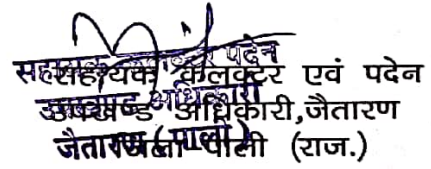 सहायक कलक्टर एवं पदेन
उपखण्ड अधिकारी,जैतारण
जिला पाली (राज.)